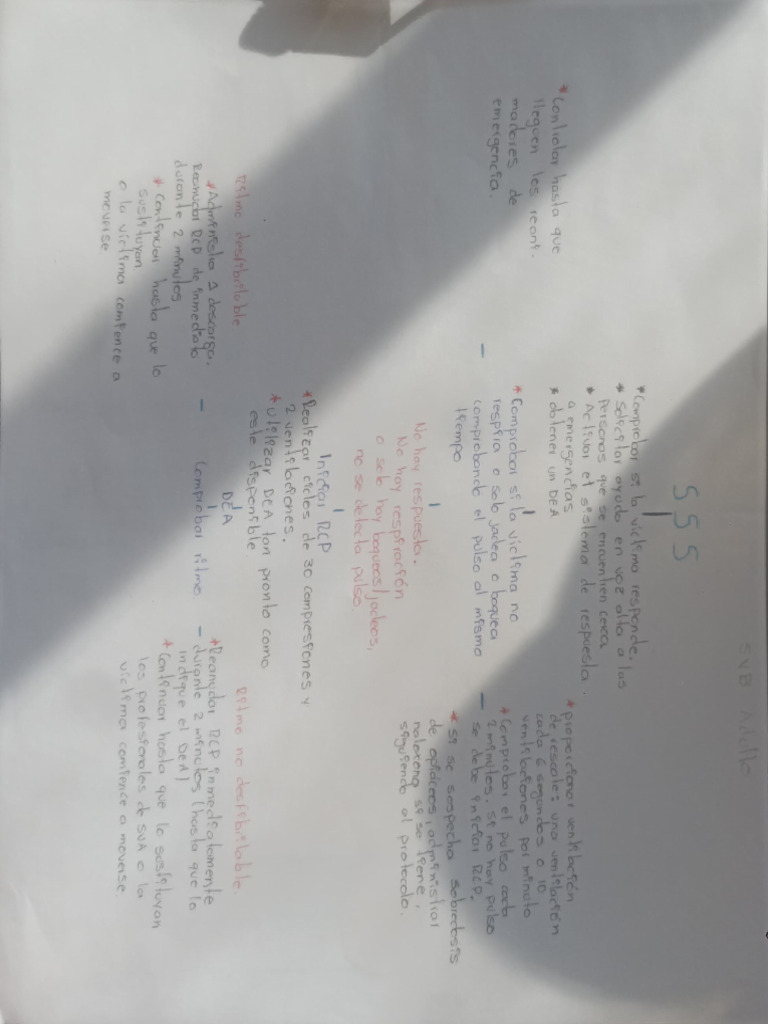 SVB Adulto
SSS
*Comprobar si la víctima responde.
* Solicitar ayuda en voz alta a las
personas que se encuentren cerca
* Activar el sistema de respuesta
a emergencias
* obtener un DEA
* Controlar hasta que
lleguen los reani-
madores de
emergencia.
* Comprobar si la víctima no
respira o solo jadea o boquea
comprobando el pulso al mismo
tiempo
*proporcionar ventilación
de rescate: una ventilación
cada 6 segundos o 10
ventilaciones por minuto
*Comprobar el pulso cada
2 minutos. si no hay pulso
se debe iniciar RCP.
* si se sospecha sobredosis
de opiáceos, administrar
naloxona si se tiene,
siguiendo el protocolo.
No hay respuesta.
No hay respiración
o solo hay boqueos/jadeos,
no se detecta pulso.
Iniciar RCP
*Realizar ciclos de 30 compresiones y
2 ventilaciones.
*Utilizar DEA tan pronto como
este disponible
DEA
Comprobar ritmo
Ritmo desfibrilable
*Administra 1 descarga.
Reanudar RCP de inmediato
durante 2 minutos
* Continuar hasta que lo
sustituyan
o la víctima comience a
moverse
Ritmo no desfibrilable.
*Reanudar RCP inmediatamente
durante 2 minutos (hasta que lo
indique el DEA)
* Continuar hasta que lo sustituyan
los profesionales de SVA o la
víctima comience a moverse.